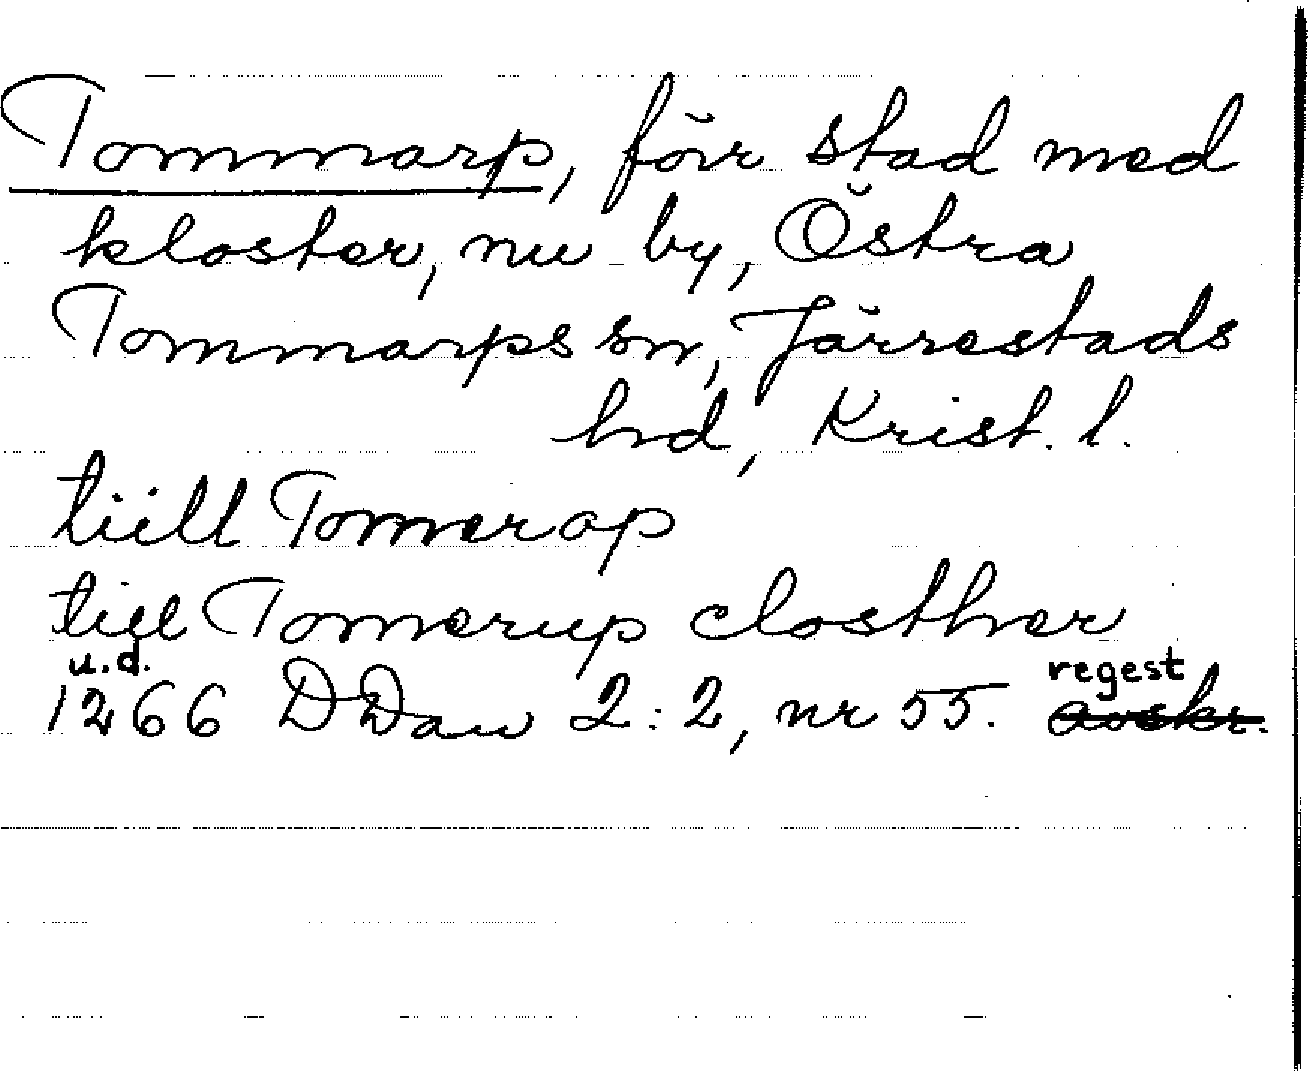 Tommarp, förr stad med
kloster, nu by, Östra
Tommarps sn, Järrestads
hd, Krist. l.
tiill Tomerop
till Tomerup closther
u.d.
1266 DDan 2:2, nr 55. regest
avskr.